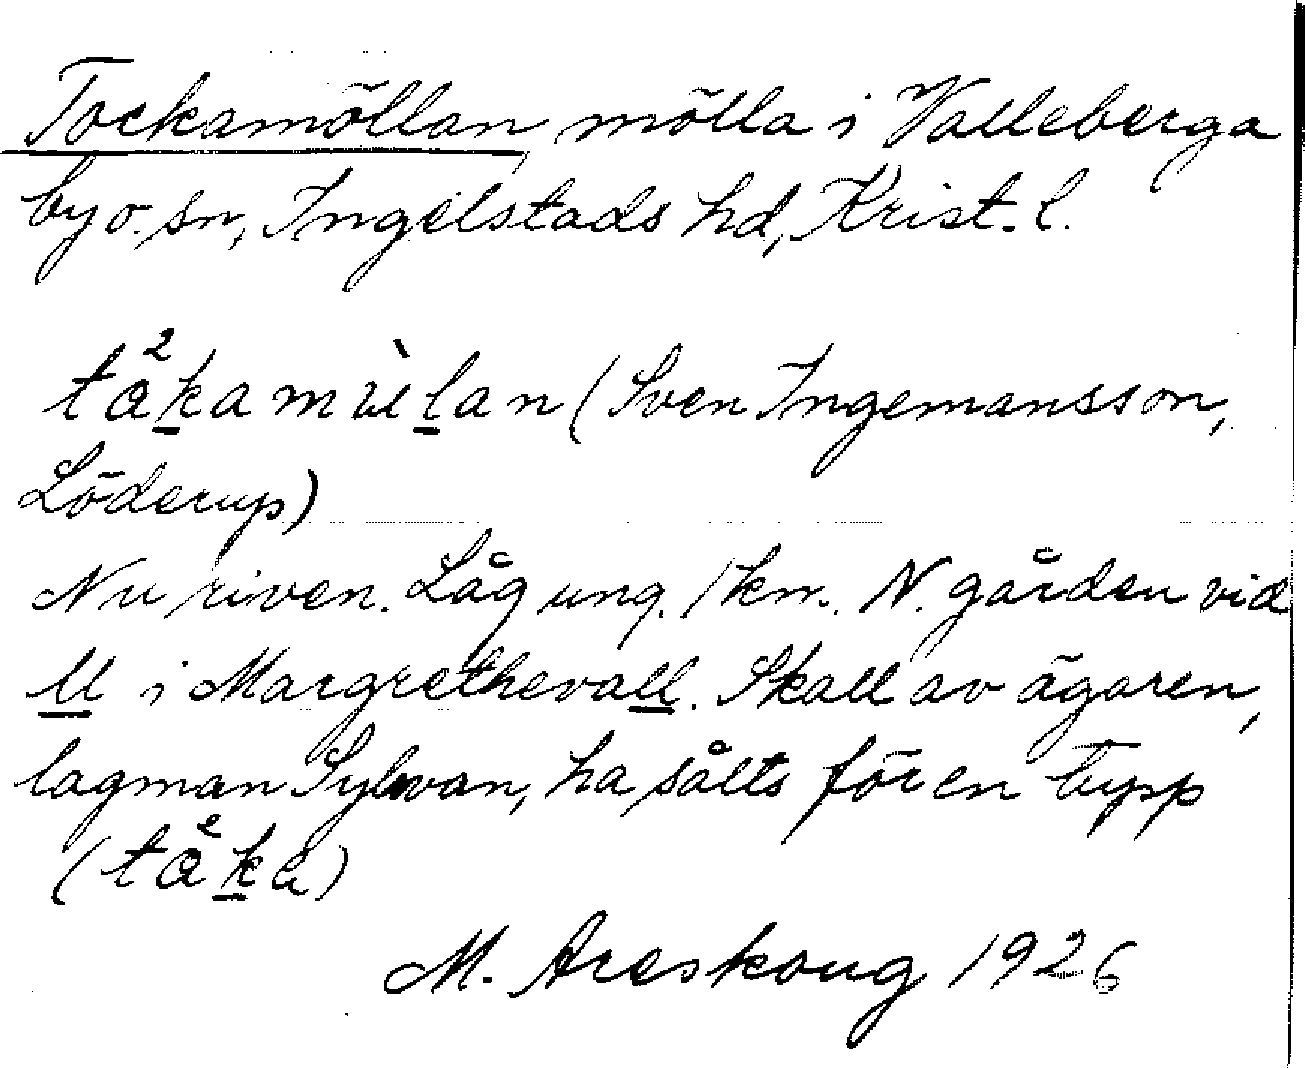 Tockamöllan mölla i Valleberga
by o. sn, Ingelstads hd, Krist. l.
tå²kamùlan (Sven Ingemansson,
Löderup)
Nu riven. Låg ung. 1 km. N. gården vid
ll i Margrethevall. Skall av ägaren,
lagman Sylwan, ha sålts för en typp
(tå²ka)
M. Areskoug 1926